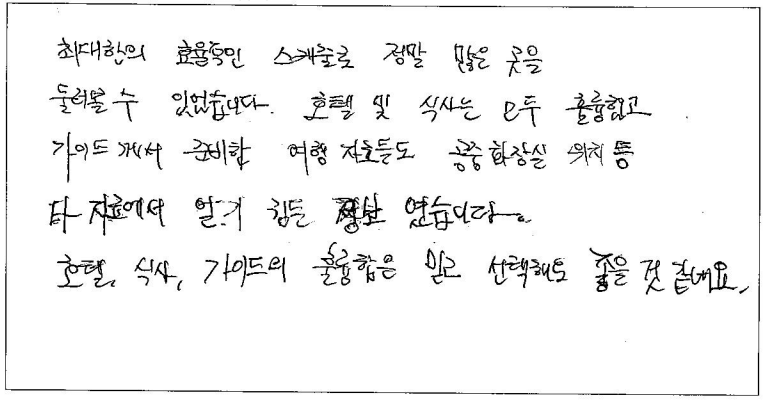 최대한의 효율적인 스케줄로 정말 많은 곳을
둘러볼 수 있었습니다. 호텔 및 식사는 모두 훌륭했고
가이드께서 준비한 여행 자료들도 공중화장실 위치 등
타 자료에서 얻기 힘든 정보였습니다.
호텔, 식사, 가이드의 훌륭함은 믿고 선택해도 좋을 것 같네요.